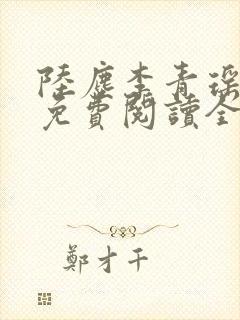 陸塵李青瑶
免費閱讀全
鄭才千